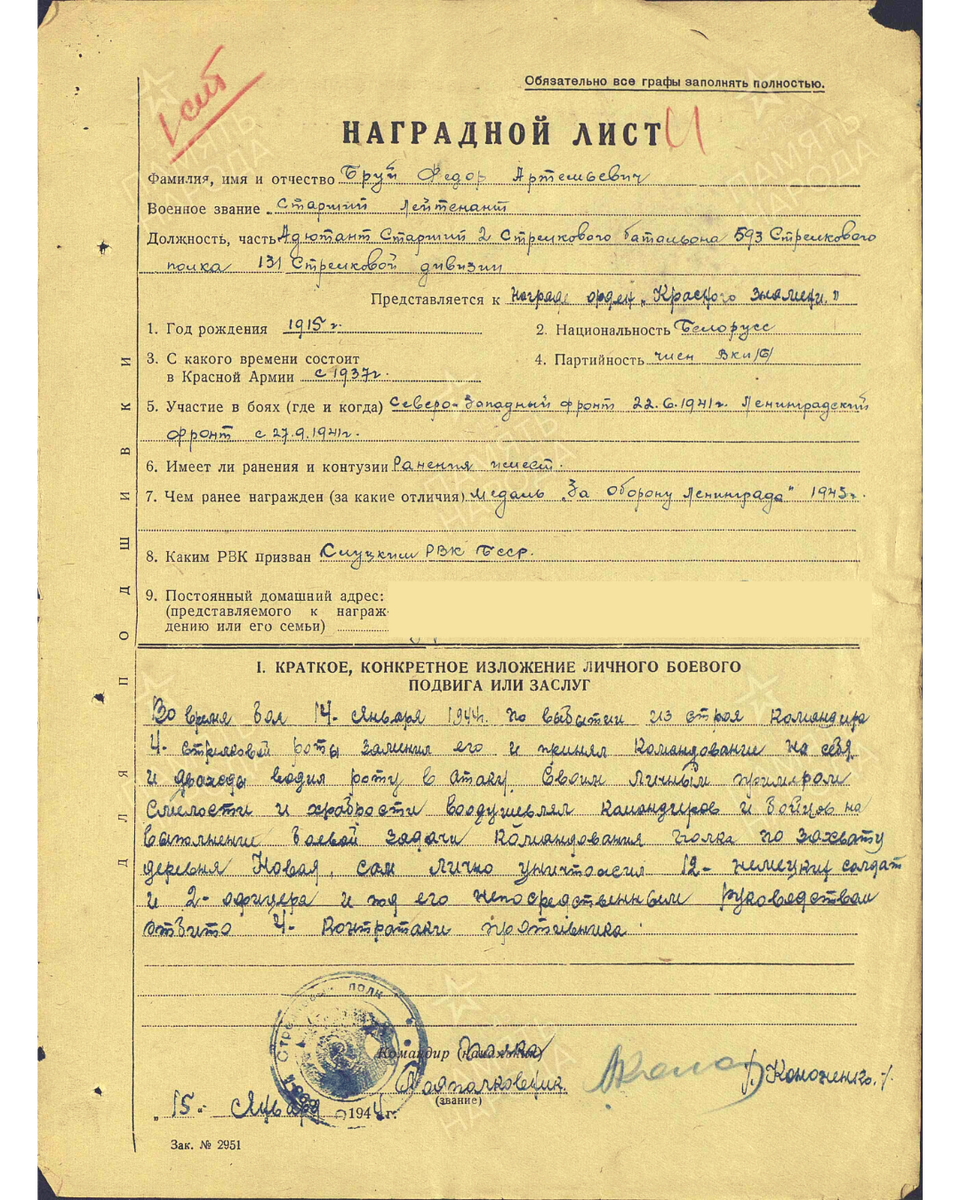 Обязательно все графы заполнять полностью.
1 сит
НАГРАДНОЙ ЛИСТ
Фамилия, имя и отчество Бруй Федор Артемьевич
Военное звание Старший Лейтенант
Должность, часть Адютант Старший 2 Стрелкового батальона 593 Стрелкового
полка 131 Стрелковой дивизии
Представляется к награде орден „Красного знамени."
1. Год рождения 1915 г.
2. Национальность Белорусс
3. С какого времени состоит
в Красной Армии с 1937 г.
4. Партийность член ВКП/б/
5. Участие в боях (где и когда) Северо-Западный фронт 22.6.1941г. Ленинградский
фронт с 27.9.1941г.
6. Имеет ли ранения и контузии Ранения имеет.
7. Чем ранее награжден (за какие отличия) Медаль „За оборону Ленинграда" 1943 г.
8. Каким РВК призван Слуцким РВК БССР.
9. Постоянный домашний адрес:
(представляемого к награж-
дению или его семьи)
ДЛЯ ПОДШИВКИ
I. КРАТКОЕ, КОНКРЕТНОЕ ИЗЛОЖЕНИЕ ЛИЧНОГО БОЕВОГО
ПОДВИГА ИЛИ ЗАСЛУГ
Во время боя 14 - января 1944г. по выбытии из строя командира
4- стрелковой роты заменил его и принял командование на себя
и дважды водил роту в атаку. Своим личным примером
смелости и храбрости воодушевлял командиров и бойцов на
выполнение боевой задачи командования полка по захвату
деревня Новая, сам лично уничтожил 12- немецких солдат
и 2- офицера и под его непосредственным руководством
отбито 4- контратаки противника.
Командир (начальник) полка
Подполковник
(звание)
/Кононенко./
„15" Января 1944 г.
Зак. № 2951
ПАМЯТЬ НАРОДА